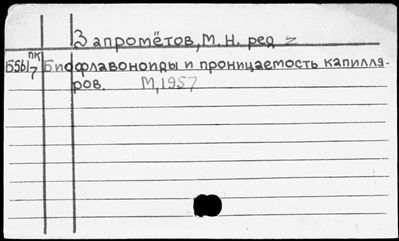 Запрометов, М. Н. ред
ПК
Б561/7 Биофлавоноиды и проницаемость капилля-
ров. М, 1957